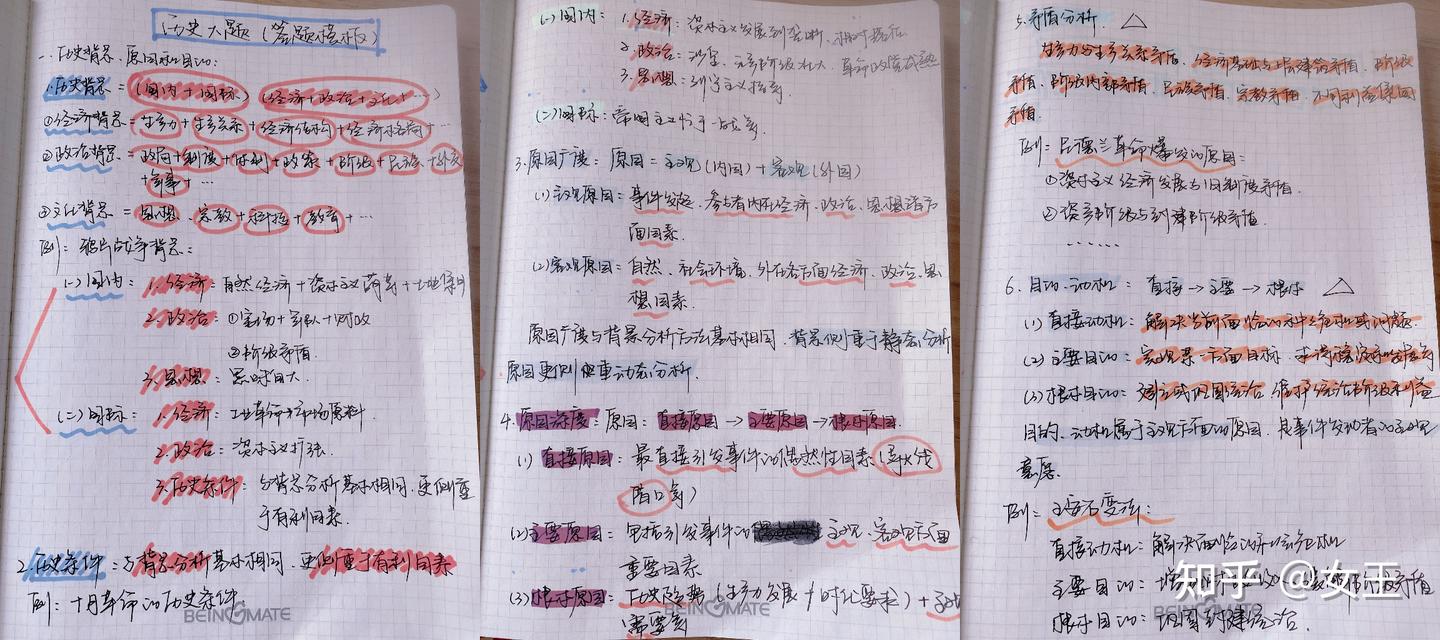 历史大题（答题模板）
一.历史背景、原因和目的：
1.历史背景=（国内+国际）（经济+政治+文化+…）
①经济背景=生产力+生产关系+经济结构+经济格局+…
②政治背景=政局+制度+体制+政策+阶级+民族+外交
+军事+…
③文化背景=思想、宗教+科技+教育+…
例：鸦片战争背景：
(一)国内：1.经济：自然经济+资本主义萌芽+土地兼并
2.政治：①官场+军队+财政
②阶级矛盾.
3.思想：
(二)国际：1.经济：工业革命→市场原料
2.政治：资本主义扩张.
3.历史条件：与背景分析基本相同,更侧重
于有利因素.
2.历史条件：与背景分析基本相同,更侧重于有利因素
例：十月革命的历史条件：
BEINGMATE
(一)国内：1.经济：资本主义发展到垄断,相对落后
2.政治：无产阶级壮大,革命政党成熟
3.思想：列宁主义指导
(二)国际：帝国主义忙于一战等.
3.原因广度：原因=主观(内因)+客观(外因)
(1)主观原因：事件发起、参与者内在经济、政治、思想诸方
面因素.
(2)客观原因：自然、社会环境、外在各方面经济、政治、思
想因素.
原因广度与背景分析方法基本相同,背景侧重于静态分析
原因更侧重动态分析.
4.原因深度：原因：直接原因→主要原因→根本原因.
(1)直接原因：最直接引发事件的偶然性因素(导火线
借口等)
(2)主要原因：包括引发事件的主观、客观方面
重要因素
(3)根本原因：历史趋势(生产力发展+时代要求)+主观
需要等
BEINGMATE
5.矛盾分析.△
生产力与生产关系矛盾,经济基础与上层建筑矛盾,阶级
矛盾,阶级内部矛盾,民族矛盾,宗教矛盾,不同利益集团
矛盾.
例：尼德兰革命爆发的原因：
①资本主义经济发展与旧制度矛盾.
②资产阶级与封建阶级矛盾.
……
6.目的、动机：直接→主要→根本 △
(1)直接动机：解决当前面临的某种危机或问题.
(2)主要目的：实现某一方面目标,
(3)根本目的：建立或巩固统治,维护统治阶级利益
目的、动机属于主观方面的原因,是事件发动者的主观
意愿.
例：王安石变法：
直接动机：解决面临的社会危机
主要目的：
根本目的：巩固封建统治.
BEINGMATE
知乎 @女王